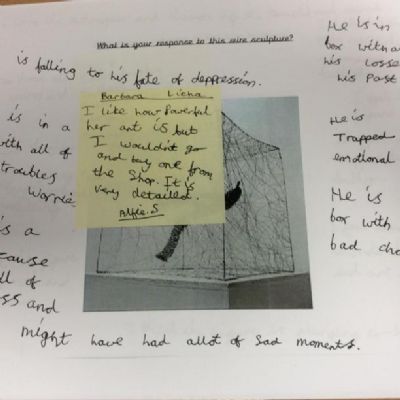 What is your response to this wire sculpture?
is falling to his fate of deppression.
is in a
with all of
troubles
worrie
is a
cause
ll of
ss and
might have had allot of sad moments.
Barbara Licha
I like how Powerful
her art is but
I wouldn't go
and buy one from
the shop. It is
very detailed.
Alfie.S
He is in
box with a
his Losse
his Past
He is
Trapped
emotional
He is
box with
bad cho